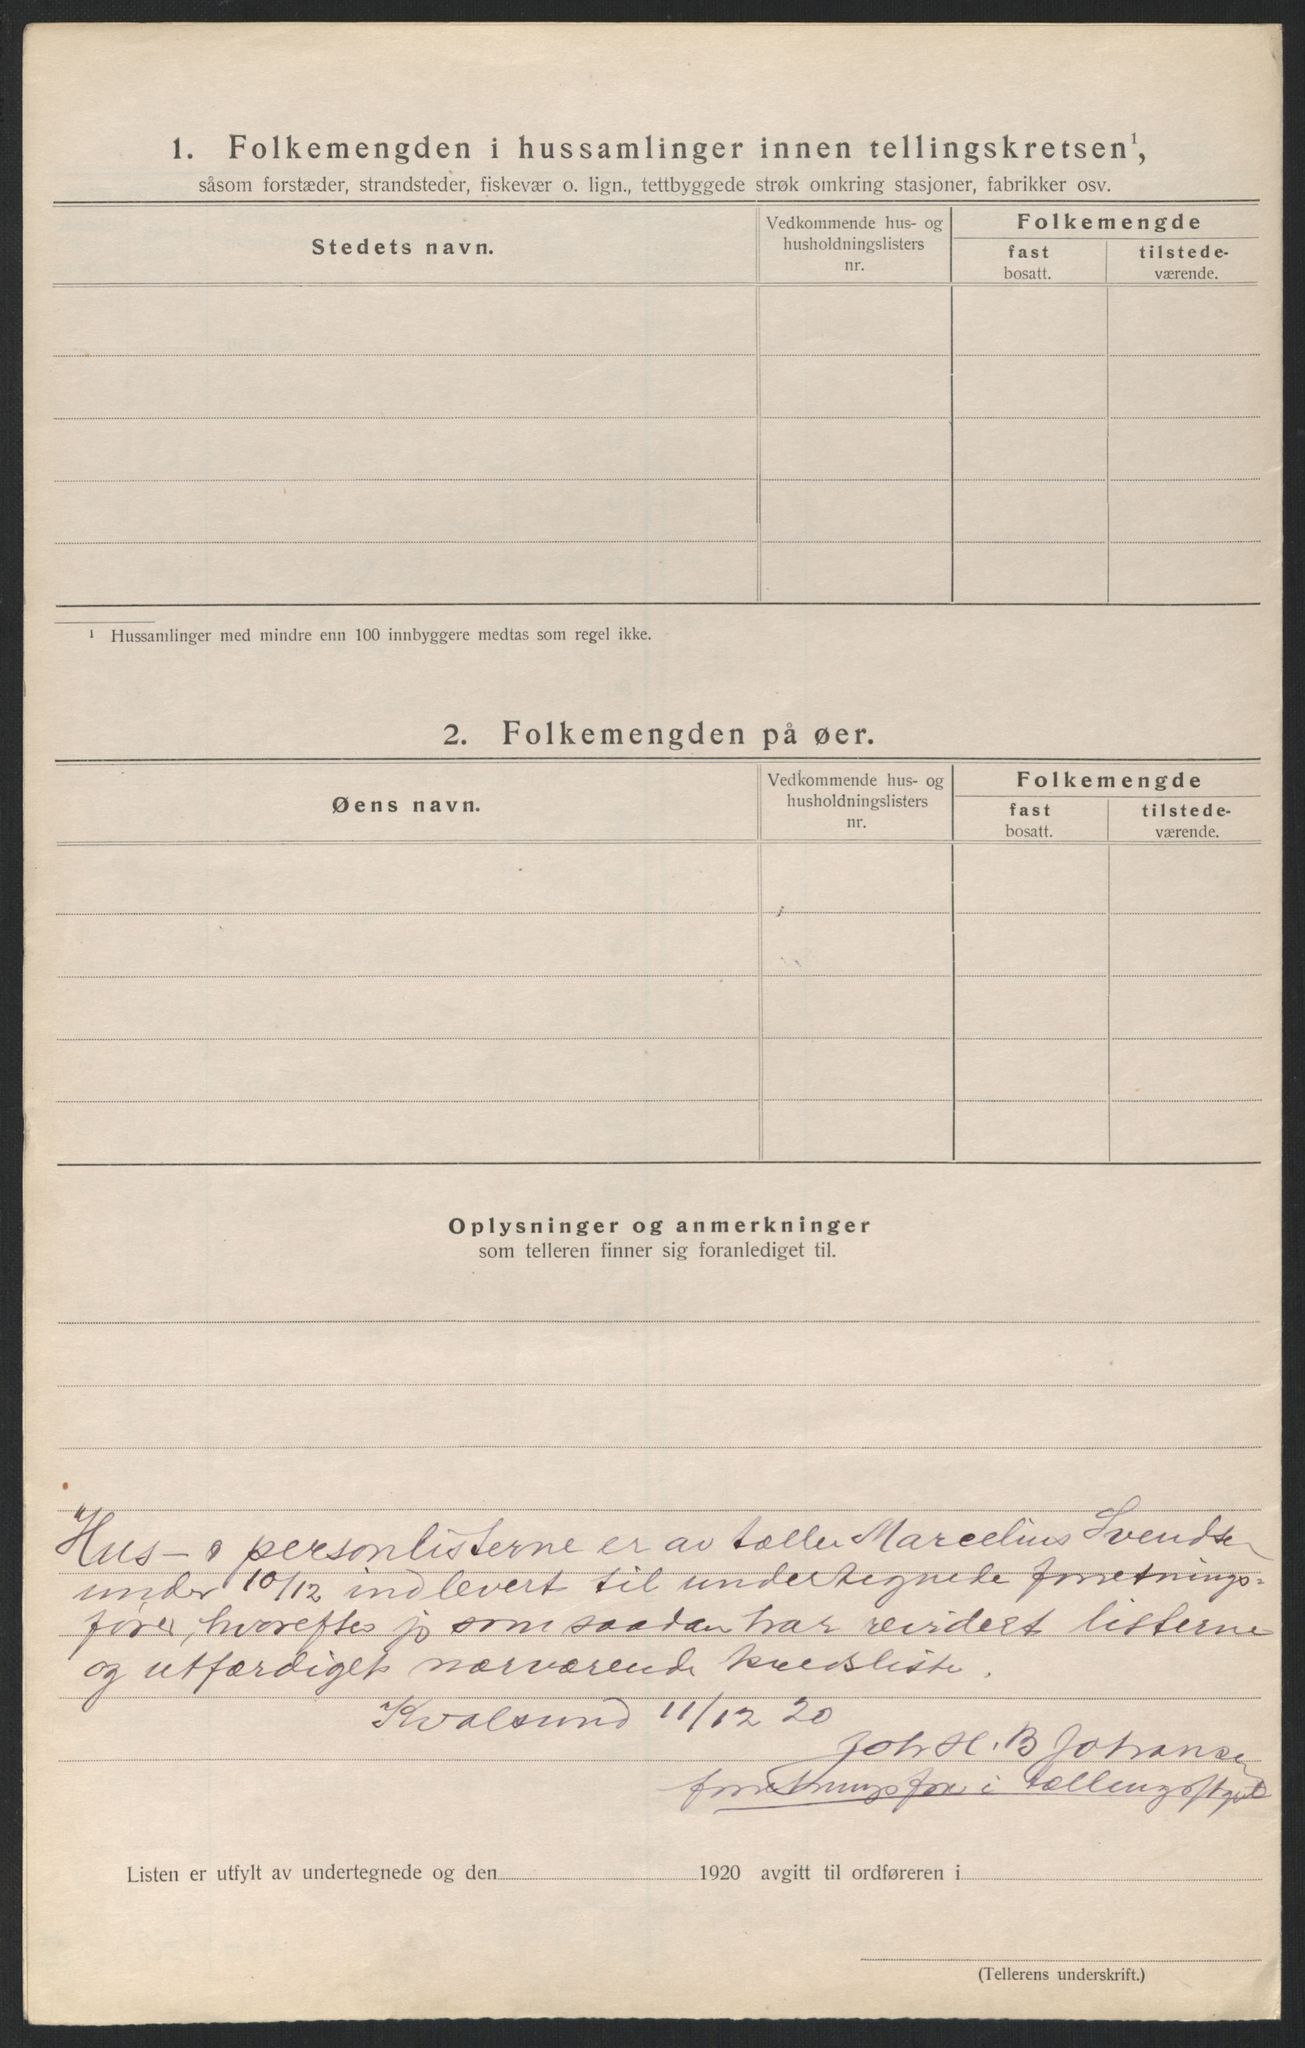 1. Folkemengden i hussamlinger innen tellingskretsen¹,
såsom forstæder, strandsteder, fiskevær o. lign., tettbyggede strøk omkring stasjoner, fabrikker osv.
Stedets navn.
Vedkommende hus- og
husholdningslisters
nr.
Folkemengde
fast
bosatt.
tilstede-
værende.
¹ Hussamlinger med mindre enn 100 innbyggere medtas som regel ikke.
2. Folkemengden på øer.
Øens navn.
Vedkommende hus- og
husholdningslisters
nr.
Folkemengde
fast
bosatt.
tilstede-
værende.
Oplysninger og anmerkninger
som telleren finner sig foranlediget til.
Hus- o personlisterne er av tæller Marcelius Svendsen
under 10/12 indlevert til undertegnede forretnings-
fører, hvorefter jg som saadan har revidert listerne
og utfærdiget nærværende kredsliste.
Kvalsund 11/12 20
Joh H. B Johansen
forretningsfører i tællingsstyret
Listen er utfylt av undertegnede og den 1920 avgitt til ordføreren i
(Tellerens underskrift.)